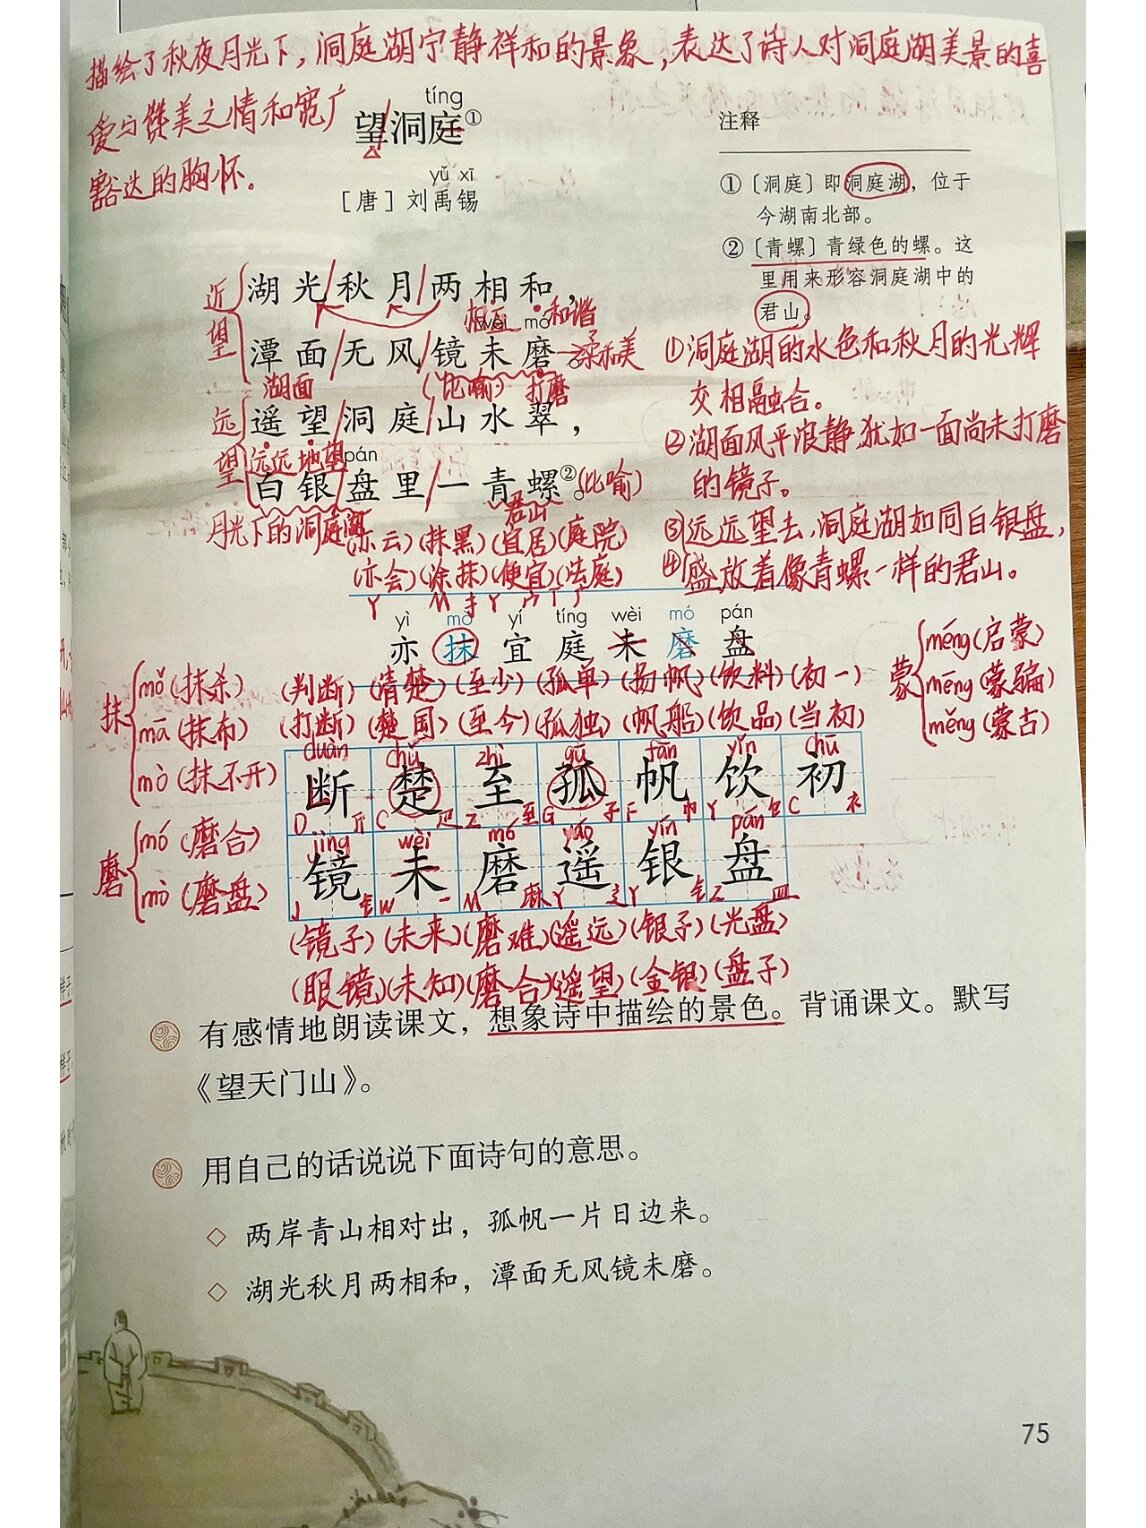 描绘了秋夜月光下，洞庭湖宁静祥和的景象，表达了诗人对洞庭湖美景的喜
爱与赞美之情和宽广
豁达的胸怀。
tíng
望洞庭①
yǔ xī
［唐］刘禹锡
注释
①〔洞庭〕即洞庭湖，位于
今湖南北部。
②〔青螺〕青绿色的螺。这
里用来形容洞庭湖中的
君山。
近望
湖光/秋月/两相和，
相互 和谐
wèi mó
潭面/无风/镜未磨。
柔和美
湖面 (比喻) 打磨
远望
遥望/洞庭/山水翠，
远远地望
pán
白银/盘里/一青螺②。(比喻)
月光下的洞庭湖 君山
①洞庭湖的水色和秋月的光辉
交相融合。
②湖面风平浪静，犹如一面尚未打磨
的镜子。
③远远望去，洞庭湖如同白银盘，
④盛放着像青螺一样的君山。
(亦云)(抹黑)(宜居)(庭院)
(亦会)(涂抹)(便宜)(法庭)
Y M 扌 Y 宀 T 广
yì mǒ yí tíng wèi mó pán
亦 抹 宜 庭 未 磨 盘
抹 mǒ(抹杀)
mā(抹布)
mò(抹不开)
磨 mó(磨合)
mò(磨盘)
蒙 méng(启蒙)
mēng(蒙骗)
měng(蒙古)
(判断)(清楚)(至少)(孤单)(扬帆)(饮料)(初一)
(打断)(楚国)(至今)(孤独)(帆船)(饮品)(当初)
duàn chǔ zhì gū fān yǐn chū
断 楚 至 孤 帆 饮 初
D 斤 C 疋 Z 至 G 子 F 巾 Y 饣 C 衤
jìng wèi mó yáo yín pán
镜 未 磨 遥 银 盘
J 钅 W 一 M 麻 Y 辶 Y 钅 Z 皿
(镜子)(未来)(磨难)(遥远)(银子)(光盘)
(眼镜)(未知)(磨合)(遥望)(金银)(盘子)
有感情地朗读课文，想象诗中描绘的景色。背诵课文。默写
《望天门山》。
用自己的话说说下面诗句的意思。
◇ 两岸青山相对出，孤帆一片日边来。
◇ 湖光秋月两相和，潭面无风镜未磨。
75